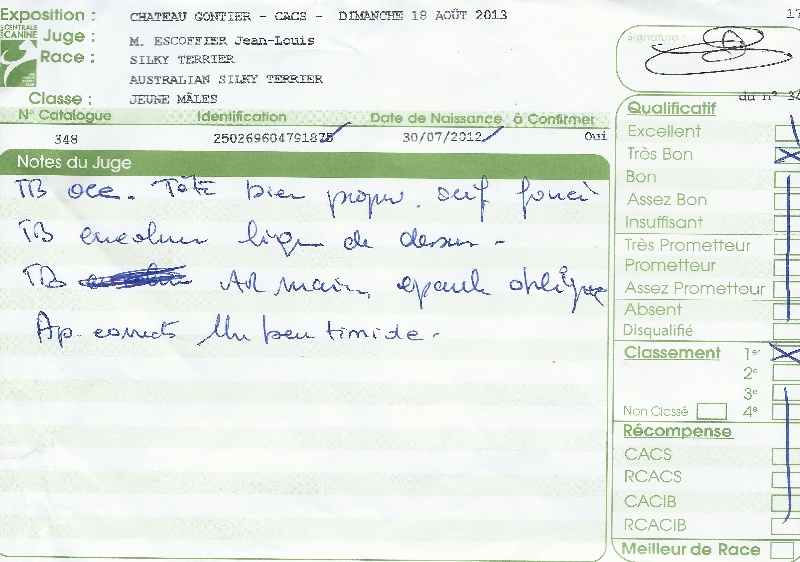 Exposition : CHATEAU GONTIER - CACS - DIMANCHE 18 AOÛT 2013 17
CENTRALE CANINE
Juge : M. ESCOFFIER Jean-Louis
Race : SILKY TERRIER
AUSTRALIAN SILKY TERRIER
Classe : JEUNE MÂLES
Signature :
N° Catalogue Identification Date de Naissance à Confirmer
348 250269604791875 30/07/2012 Oui
du n° 34
Notes du Juge
TB occ. Tête bien propor. œuf foncé
TB encolure ligne de dessus -
TB AR main, epaule oblique
Ap. corrects Un peu timide -
Qualificatif
Excellent
Très Bon
Bon
Assez Bon
Insuffisant
Très Prometteur
Prometteur
Assez Prometteur
Absent
Disqualifié
Classement 1er
2e
3e
Non Classé 4e
Récompense
CACS
RCACS
CACIB
RCACIB
Meilleur de Race